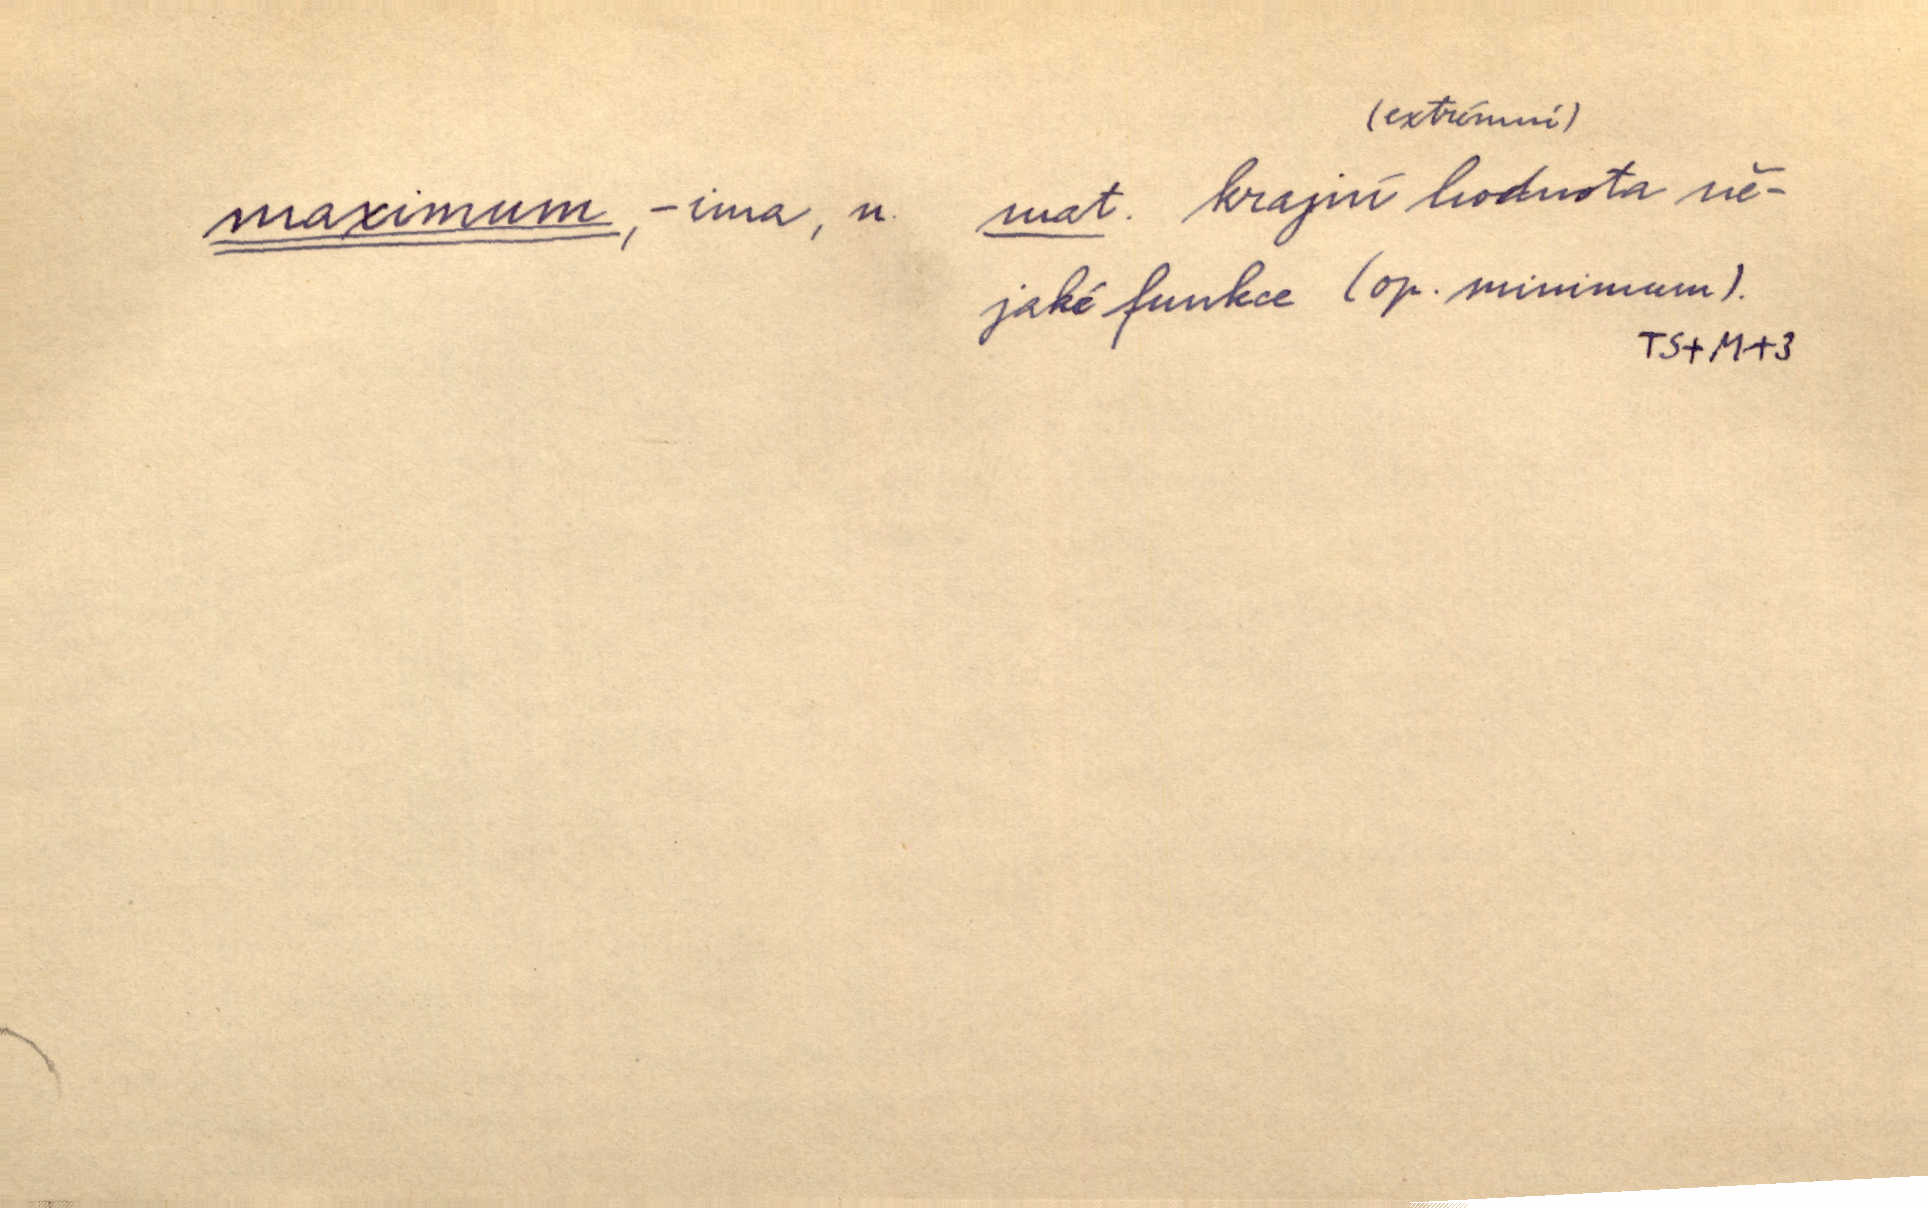 (extrémní)
maximum, -ima, n. mat. krajní hodnota ně-
jaké funkce (op. minimum).
TS+M+3